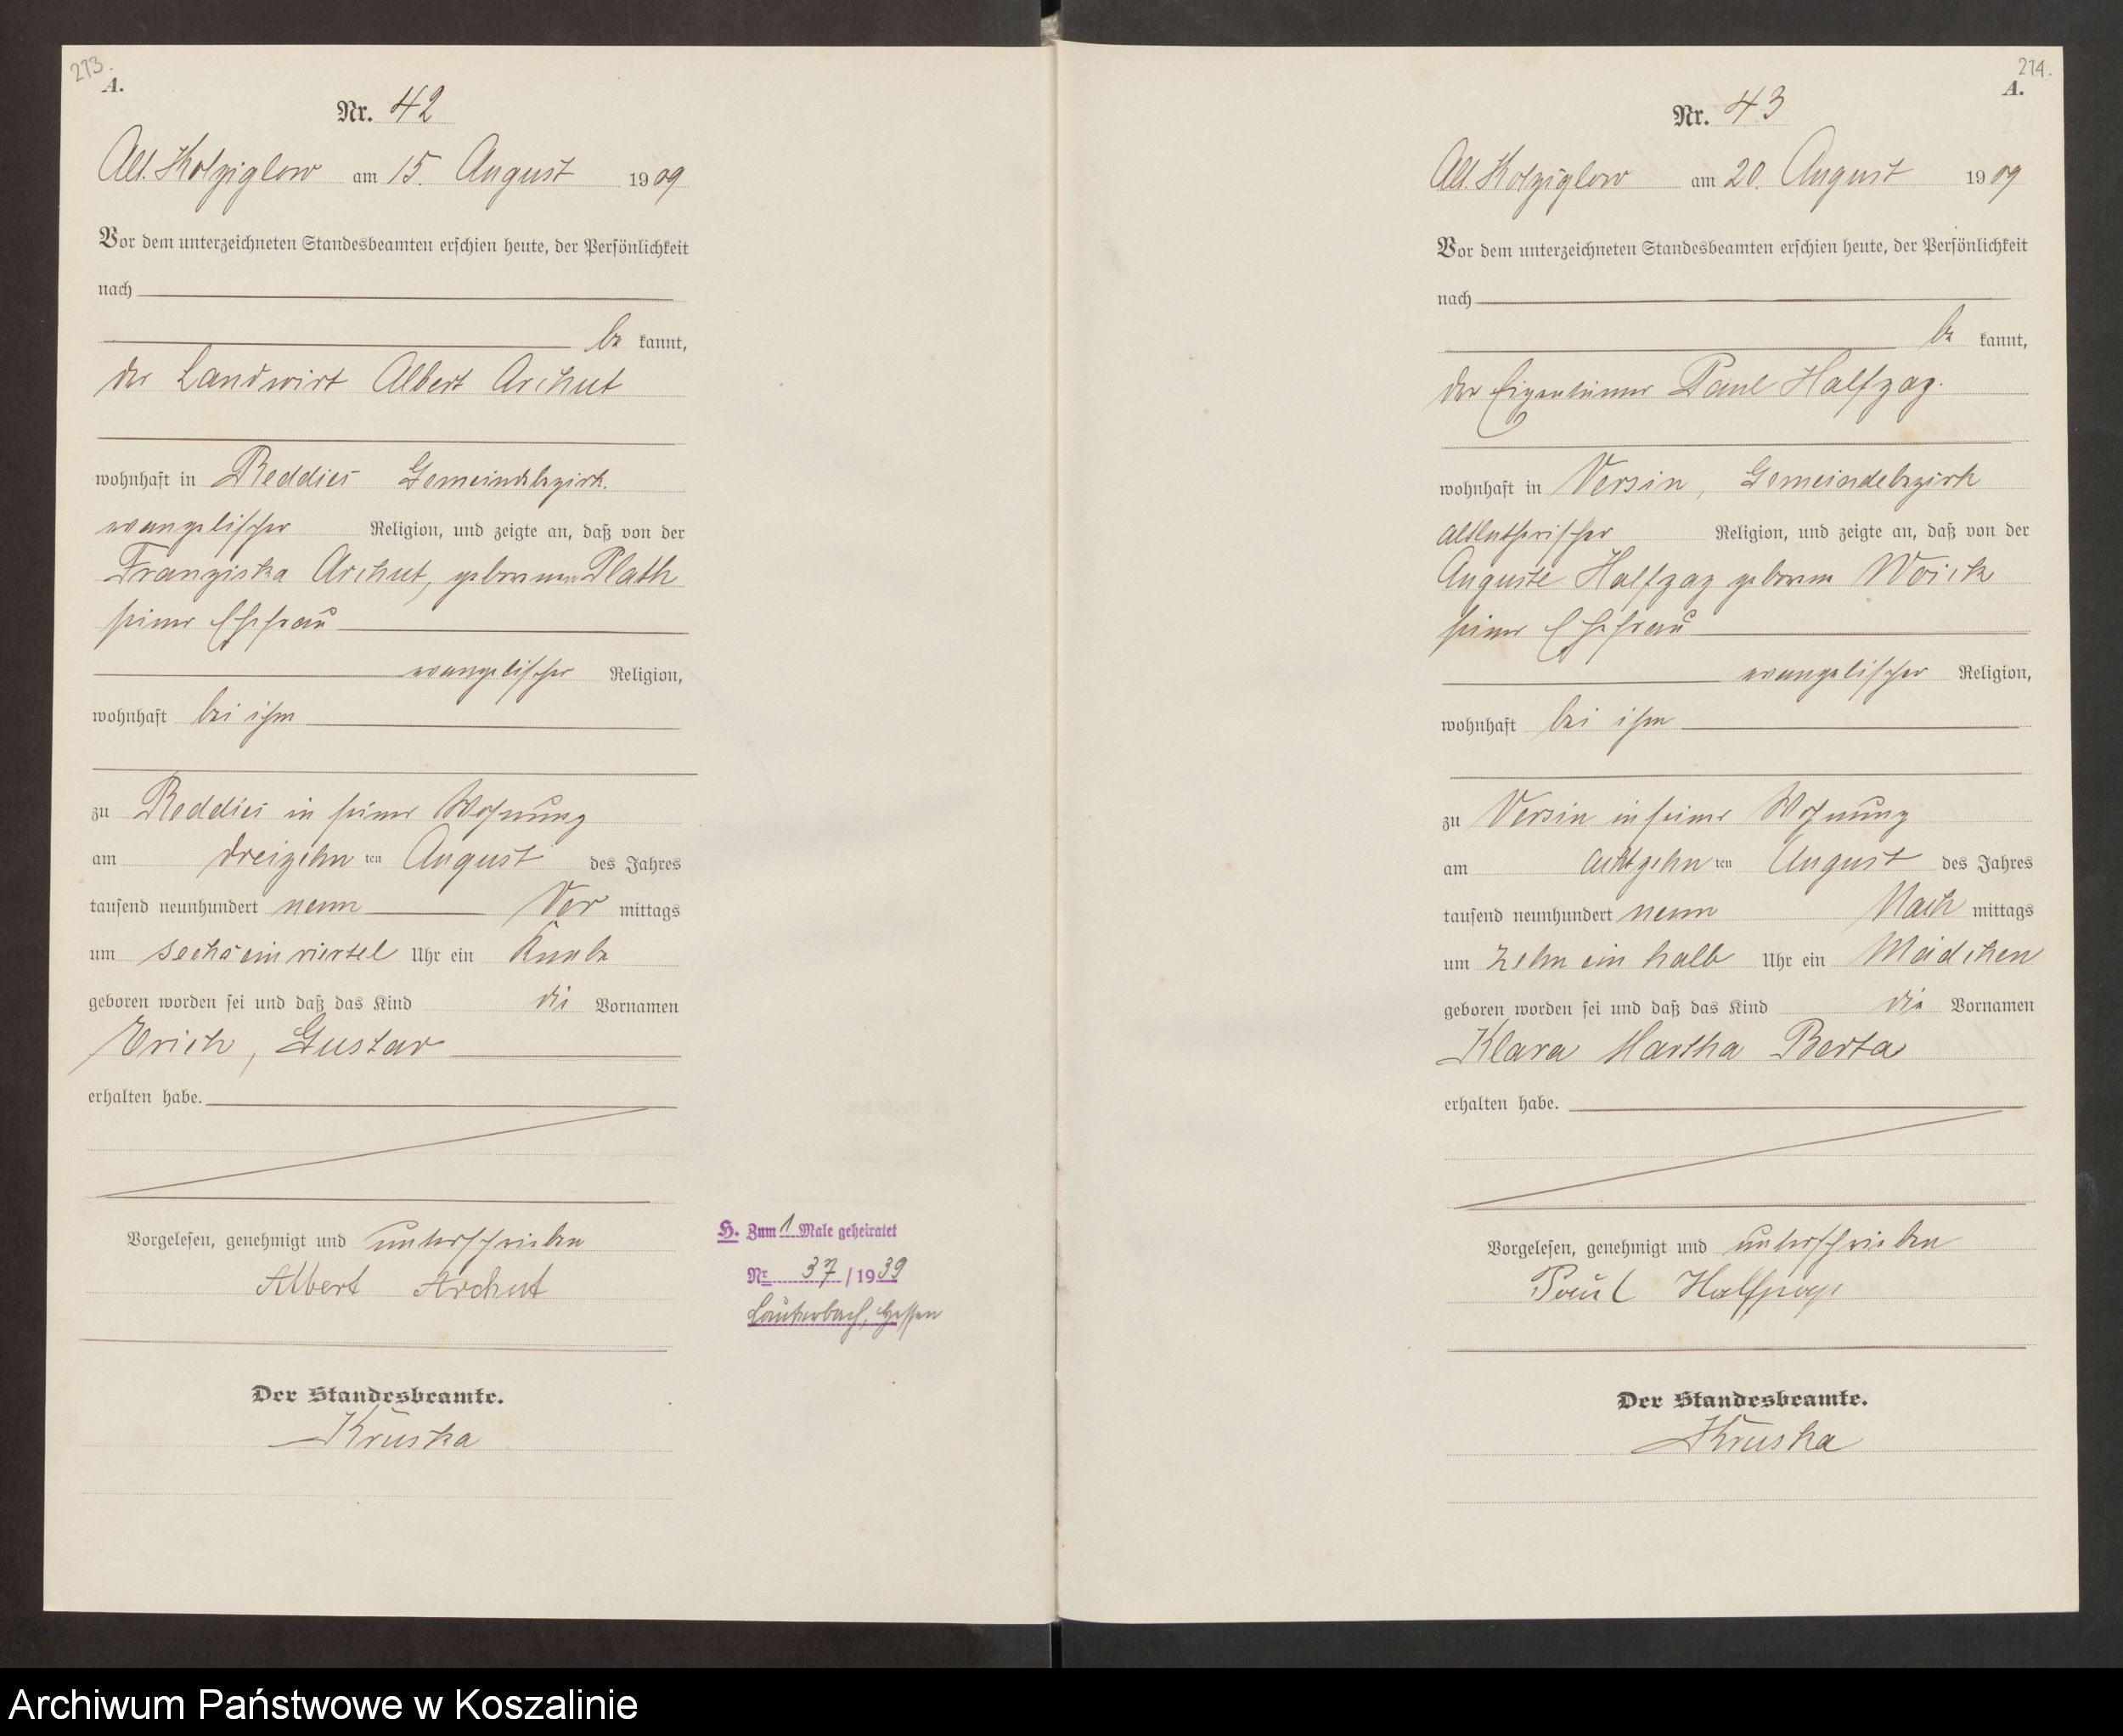 273.
A.
Nr. 42
Alt. Kolziglow am 15. August 1909
Vor dem unterzeichneten Standesbeamten erschien heute, der Persönlichkeit
nach
be kannt,
der Landwirt Albert Archut
wohnhaft in Reddies Gemeindebezirk.
evangelischer Religion, und zeigte an, daß von der
Franziska Archut, geborenen Plath
seiner Ehefrau
evangelischer Religion,
wohnhaft bei ihm
zu Reddies in seiner Wohnung
am dreizehn ten August des Jahres
tausend neunhundert neun Vor mittags
um sechs ein viertel Uhr ein Knabe
geboren worden sei und daß das Kind die Vornamen
Erich, Gustav
erhalten habe.
Vorgelesen, genehmigt und unterschrieben
Albert Archut
H. Zum 1 Male geheiratet
Nr 37/1939
Lauterbach, Hessen
Der Standesbeamte.
Kruska
274.
A.
Nr. 43
Alt. Kolziglow am 20. August 1909
Vor dem unterzeichneten Standesbeamten erschien heute, der Persönlichkeit
nach
be kannt,
der Eigentümer Paul Halfzag.
wohnhaft in Versin, Gemeindebezirk
altlutherischer Religion, und zeigte an, daß von der
Auguste Halfzag geborene Woick
seiner Ehefrau
evangelischer Religion,
wohnhaft bei ihm
zu Versin in seiner Wohnung
am achtzehn ten August des Jahres
tausend neunhundert neun Nach mittags
um zehn ein halb Uhr ein Mädchen
geboren worden sei und daß das Kind die Vornamen
Klara Martha Berta
erhalten habe.
Vorgelesen, genehmigt und unterschrieben
Paul
Der Standesbeamte.
Kruska
Archiwum Państwowe w Koszalinie